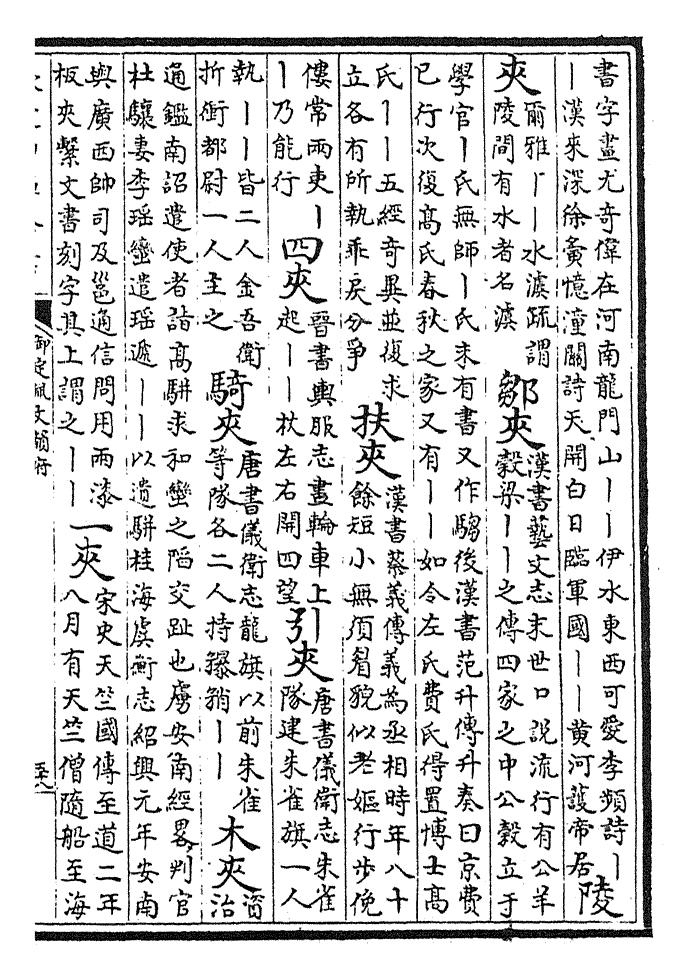 書字畫尤奇偉在河南龍門山丨丨伊水東西可愛李頻詩丨
丨漢來深徐夤憶潼關詩天開白日臨軍國丨丨黄河護帝居
陵
夾
爾雅丨丨水澞疏謂
陵間有水者名澞
鄒夾
漢書藝文志末世口說流行有公羊
榖梁丨丨之傳四家之中公榖立于
學官丨氏無師丨氏未有書又作騶後漢書范升傳升奏曰京費
已行次復高氏春秋之家又有丨丨如令左氏費氏得置博士高
氏丨丨五經奇異並復求
立各有所執乖戾分爭
扶夾
漢書蔡義傳義為丞相時年八十
餘短小無須眉貌似老嫗行步俛
僂常兩吏丨
丨乃能行
四夾
晉書輿服志畫輪車上
起丨丨杖左右開四望
引夾
唐書儀衛志朱雀
隊建朱雀旗一人
執丨丨皆二人金吾衛
折衝都尉一人主之
騎夾
唐書儀衛志龍旗以前朱雀
等隊各二人持矟丨丨
木夾
資
治
通鑑南詔遣使者詣高駢求和蠻之陷交趾也虜安南經畧判官
杜驤妻李瑶蠻遣瑶遞丨丨以遺駢桂海虞衡志紹興元年安南
與廣西帥司及邕通信問用兩漆
板夾繫文書刻字其上謂之丨丨
一夾
宋史天竺國傳至道二年
八月有天竺僧隨船至海
御定佩文韻府